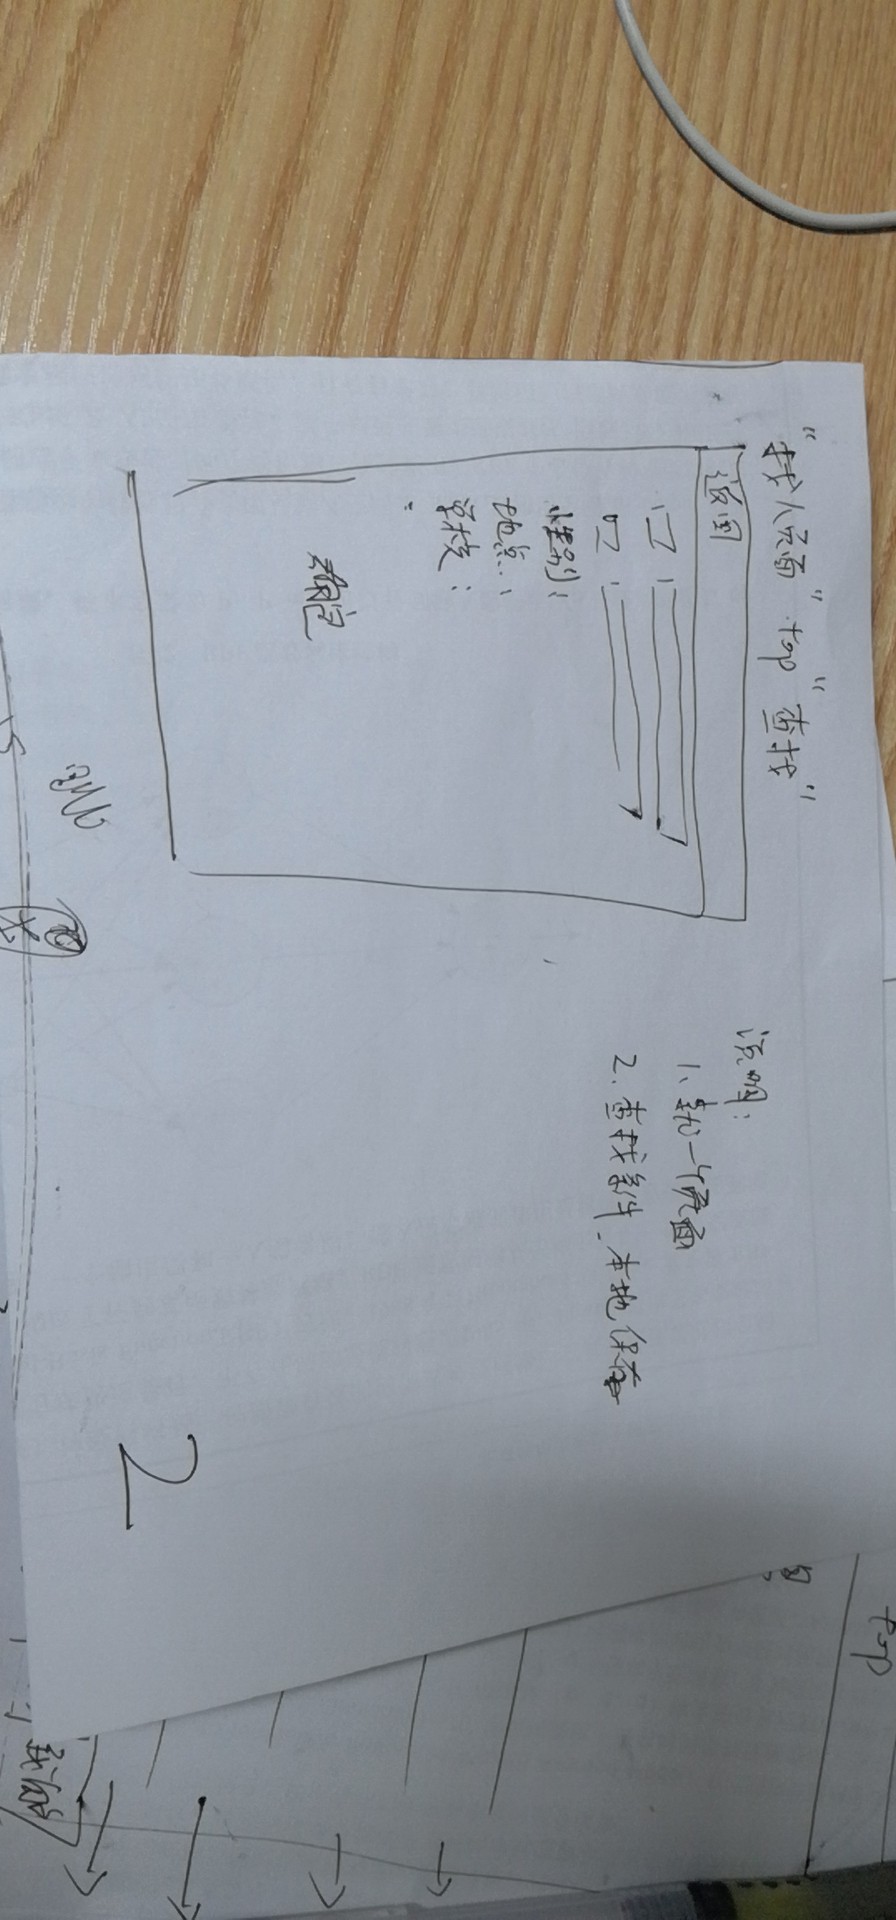 "找人页面" top "查找"
返回
口:
口:
性别:
地点:
学校:
确定
说明:
1、新一个页面
2、查找条件、本地保存
2
top